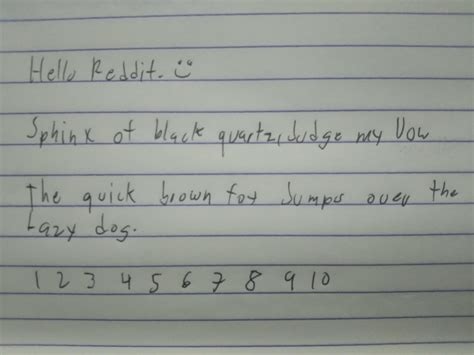 Hello Reddit. :)
Sphinx of black quartz, Judge my Vow
The quick brown fox Jumps over the
Lazy dog.
1 2 3 4 5 6 7 8 9 10